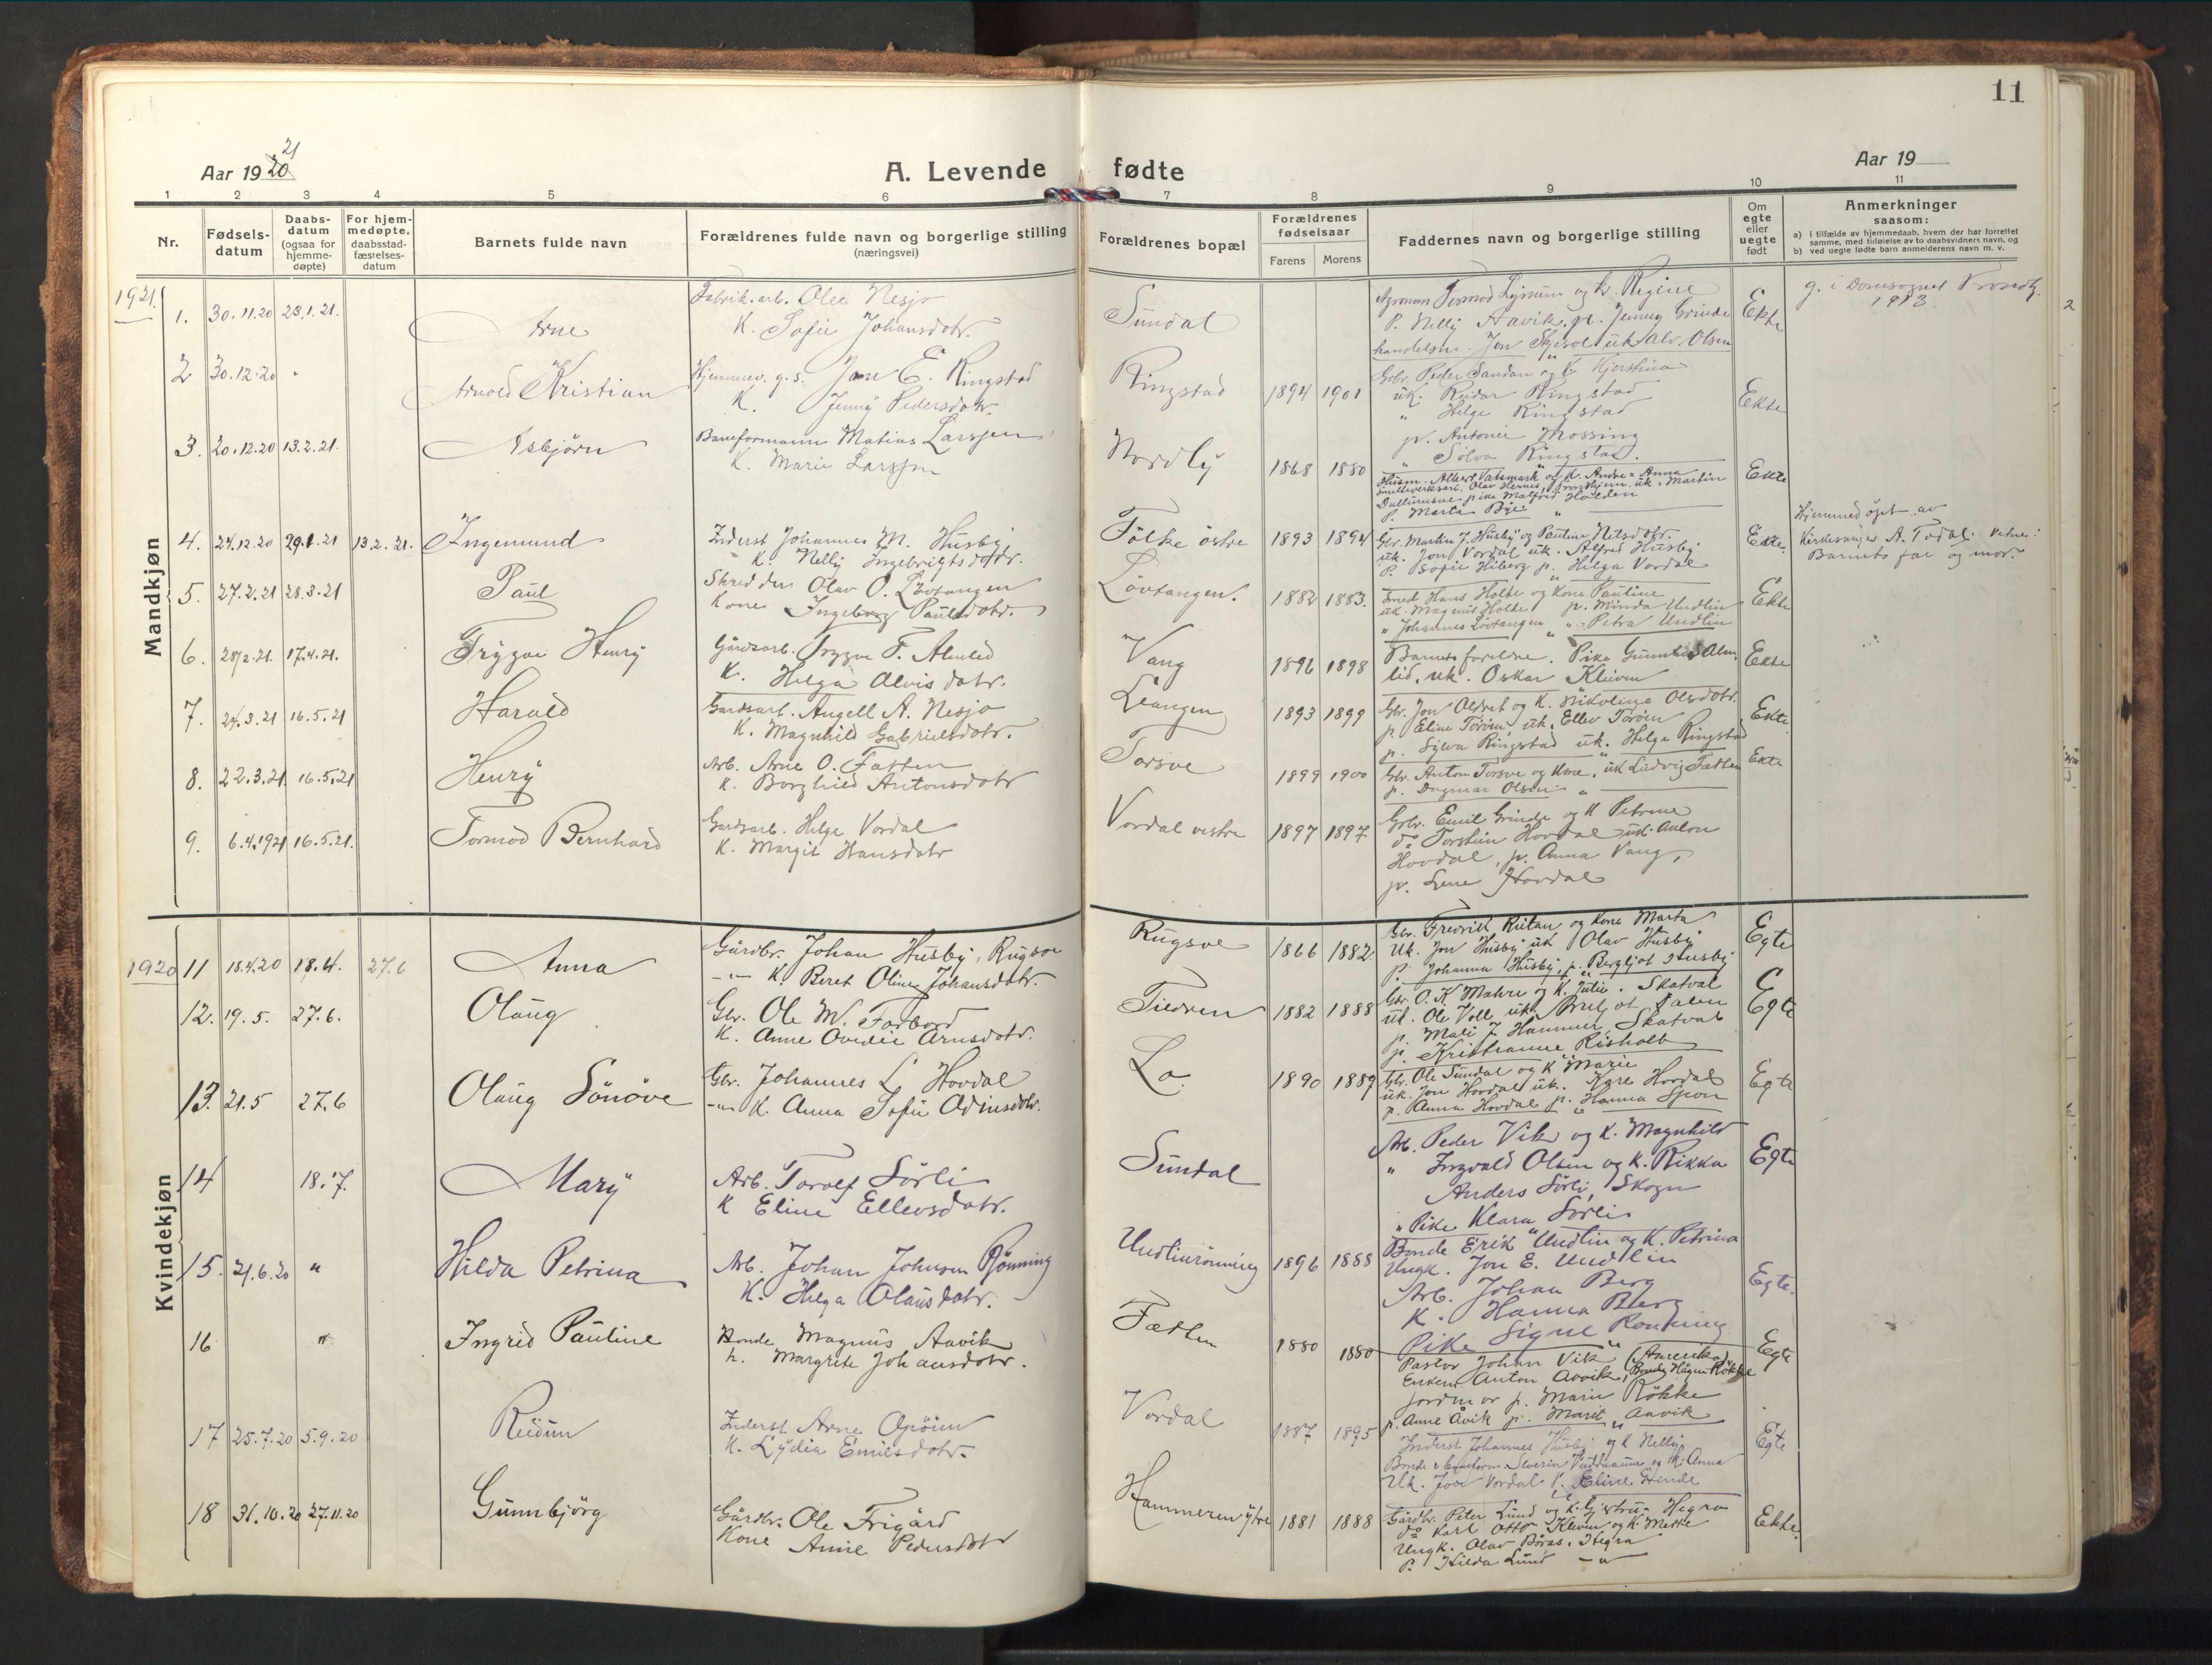 11
21
Aar 19 20
A. Levende fødte
Aar 19
1 2 3 4 5 6 7 8 9 10 11
Nr.
Fødsels-
datum
Daabs-
datum
(ogsaa for
hjemme-
døpte)
For hjem-
medøpte,
daabsstad-
fæstelses-
datum
Barnets fulde navn
Forældrenes fulde navn og borgerlige stilling
(næringsvei)
Forældrenes bopæl
Forældrenes
fødselsaar
Farens Morens
Faddernes navn og borgerlige stilling
Om
egte
eller
uegte
født
Anmerkninger
saasom:
a) i tilfælde av hjemmedaab, hvem der har forrettet
samme, med tilføielse av to daabsvidners navn, og
b) ved uegte fødte barn anmelderens navn m. v.
Mandkjøn
1921.
1. 30.11.20 23.1.21. Arne
Fabrik. arb. Ole Nesjo
K. Sofie Johansdotr.
Sundal
Agronom Tormod Lynum og k. Regine
P. Nelly Aavik, p. Jenny Grinde
handelsm. Jon Skjesol uk Alv. Olsen
Ekte
g. i Domsognet Trondhj.
1913.
2 30.12.20 " Arnold Kristian
Hjemmev. g.s. Jon E. Ringstad
K. Jenny Pedersdotr.
Ringstad 1894 1901
Gbr. Peder Sandan og k Kjerstina
uk. Reidar Ringstad
" Helge Ringstad
p. Antonie Mossing
" Solva Ringstad.
Ekte
3. 20.12.20 13.2.21. Asbjörn
Baneformann Matias Larssen
K. Marie Larssen
Nordly 1868 1880
Husm. Albert Vatsmark og K. Andrea Anna
Smelteverksarb. Olav Hernes, Trondhjem uk. Martin
Dullumsve pike Malfrid Holden
P. Marta Bye "
Ekte
4. 24.12.20 29.1.21 13.2.21. Ingemund
Inderst Johannes M. Husby
K. Nelly Ingebrigtsdotr.
Folke östre 1893 1894
Gbr. Martin J. Husby og Pauline Nilsdotr.
uk. Jon Vordal uk. Alfred Husby
P. Sofie Hiberg p. Helga Vordal
Ekte.
Hjemmedöpt av
Kirkesanger A. Todal. Vitne:
Barnets far og mor.
5. 27.2.21 28.3.21 Paul
Skredder Olav O. Lövtangen
Kone Ingeborg Paulsdotr.
Lövtangen. 1882 1883.
Smed Hans Holte og kone Pauline
uk. Magnus Holte p. Minda Undlin
" Johannes Lövtangen " Petra Undlin
Ekte
6. 28/2.21. 17.4.21. Trygve Henry
Gårdsarb. Trygve F. Almlid
K. Helga Alvisdotr.
Vang 1896 1898
Barnets foreldre. Pike Gunnhild Alm-
lid, uk. Oskar Kleiven
Ekte
7. 24.3.21 16.5.21 Harald
Gardsarb. Angell A. Nesjo
K. Magnhild Gabrielsdotr.
Leangen 1893 1899
Gbr. Jon Oldret og K. Nikoline Olsdotr.
p. Eline Toröen, uk. Ellev Toröen
p. Sylva Ringstad uk. Helge Ringstad
Ekte
8. 22.3.21. 16.5.21 Henry
Arb. Arne O. Fatten
K. Borghild Antonsdotr
Torsve 1899 1900
Gbr. Anton Torsve og kone, uk Ludvig Fætten
p. Dagmar Olsen "
Ekte
9. 6.4.1921 16.5.21. Tormod Bernhard
Gardsarb. Helge Vordal
K. Margit Hansdotr
Vordal vestre 1897 1897
Gbr. Emil Grinde og K Petrine
do Torstein Hovdal uk. Anton
Hovdal, p. Anna Vang,
p. Lene Hovdal
Kvindekjøn
1920 11 18.4.20 18.4. 27.6 Anna
Gårdbr. Johan Husby, Rugsve
-"- K. Beret Oline Johansdotr.
Rugsve 1866 1882
Gbr. Fredrik Reitan og kone Marta
Uk. Jon Husby uk Olav Husby
p. Johanna Husby, p. Bergljot Husby
Egte
12. 19.5. 27.6. Olaug
Gbr. Ole M. Forbord
K. Anne Ovedie Arnsdotr.
Tiedren 1882 1888
Gbr. O. K. Mahre og K. Julie. Skatval
uk. Ole Voll uk. Bruljot Dalen
p. Mali J. Hammer, Skatval
p. Kristianne Risholt
Egte
13. 21.5 27.6 Olaug Sönöve
Gbr. Johannes L. Hovdal
-"- K. Anna Sofie Odinsdotr.
Lo. 1890 1889
Gbr. Ole Sundal og K Marie
uk. Jon Hovdal uk. Kåre Hovdal
p. Anna Hovdal p. Hanna Spon
Egte
14 18.7. Mary
Arb. Torolf Sörli
K Eline Ellevsdotr.
Sundal
Arb. Peder Vik og K. Magnhild
" Ingvald Olsen og K. Rikka
Anders Sörli, Skogn
" Pike Klara Sörli
Egte
15. 21.6.20 " Hilda Petrina
Arb. Johan Johnsen Rönning
K. Helga Olausdotr.
Undlinrönning 1896 1888
Bonde Erik Undlin og K. Petrina
Ungk. Jon E. Undlin
Arb. Johan Berg
K. Hanna Berg
Pike Signe Rönning
Egte.
16 " Ingrid Pauline
Bonde Magnus Aavik
k. Margrete Johansdotr.
Fætten 1880 1880
Pastor Johan Vik (Amerika)
Enkem. Anton Aavik, Bonde Hågen Rökke
jordmor p. Marie Rökke
p. Anne Åvik p. Marit Aavik
Egte
17 25.7.20 5.9.20 Reidun
Inderst Arne Opöien
K. Lydia Emilsdotr.
Vordal 1887 1895
Inderst Johannes Husby og k Nelly
Bonde & baneform. Severin og k. Anna
Uk. Jon Vordal P. Eline Grinde
Egte
18 31.10.20 27.11.20 Gunnbjörg
Gårdbr. Ole Frigård
Kone Anne Pedersdotr
Hammeren ytre 1881 1888
Gårdbr. Peter Lund og k. Gjertru - Hegra
do Karl Otto Kleven og K. Mette
Ungk. Olav Börås, Hegra
P. Hilda Lund -"-
Ekte.